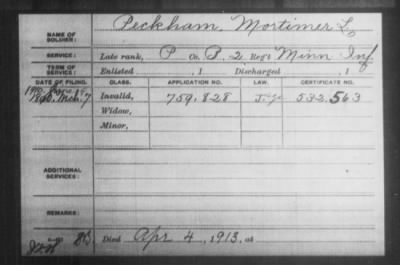 Peckham, Mortimer L.
NAME OF SOLDIER:
SERVICE: Late rank, P Co. B, 2 Reg't Minn Inf
TERM OF SERVICE: Enlisted , 1 Discharged , 1
DATE OF FILING. CLASS. APPLICATION NO. LAW. CERTIFICATE NO.
1890, Mch. 7 Invalid, 759.828 532.563
Widow,
Minor,
ADDITIONAL SERVICES:
REMARKS:
Died Apr 4, 1913, at